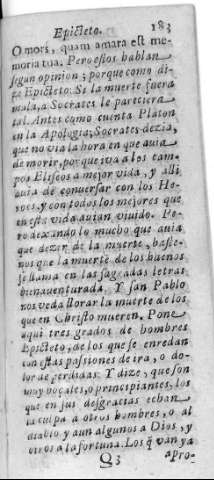 Epicteto. 183
O mors, quam amara est me-
moria tua. Pero estos hablan
segun opinion; porque como di-
ze Epicteto: Si la muerte fuera
mala, a Socrates le pareciera
tal. Antes como cuenta Platon
en la Apologia, Socrates dezia,
que no via la hora en que auia
de morir, porque iva a los cam-
pos Eliseos a mejor vida, y alli
auia de conversar con los He-
roes, y con todos los mejores que
en esta vida avian vivido. Pe-
ro dexando lo mucho que auia
que dezir de la muerte, baste-
nos que la muerte de los buenos
se llama en las sagradas letras
bienaventurada. Y san Pablo
nos veda llorar la muerte de los
que en Christo mueren. Pone
aqui tres grados de hombres
Epicteto, de los que se enredan
con estas passiones de ira, o do-
lor de perdidas: Y dize, que son
muy boçales, o principiantes, los
que en sus desgracias echan
la culpa a otros hombres, o al
diablo y aun algunos a Dios, y
otros a la fortuna. Los q̃ van ya
Q3 apro-